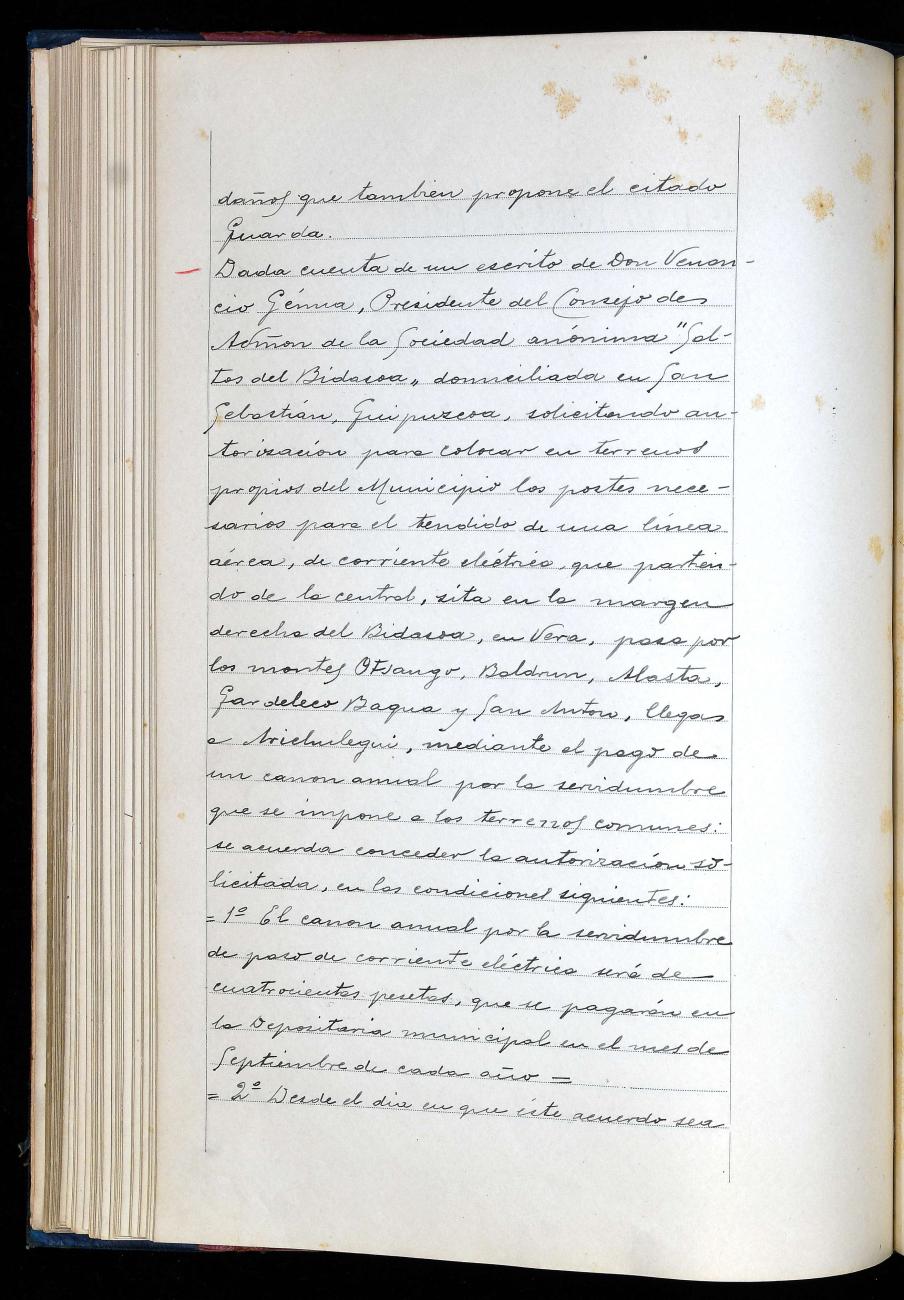 daños que tambien propone el citado
Guarda.
Dada cuenta de un escrito de Don Venan-
cio Génua, Presidente del Consejo de
Admon de la Sociedad anónima "Sal-
tos del Bidasoa„ domiciliada en San
Sebastián, Guipuzcoa, solicitando au-
torización para colocar en terrenos
propios del Municipio los postes nece-
sarios para el tendido de una línea
aérea, de corriente eléctrica, que partien-
do de la central, sita en la margen
derecha del Bidasoa, en Vera, pasa por
los montes Otsango, Baldrun, Alasta,
Gardeleco Bagua y San Anton, llegas
a Arichulegui, mediante el pago de
un canon anual por la servidumbre
que se impone a los terrenos comunes:
se acuerda conceder la autorización so-
licitada, en las condiciones siguientes:
= 1º El canon anual por la servidumbre
de paso de corriente eléctrica será de
cuatrocientas pesetas, que se pagarán en
la Depositaria municipal en el mes de
Septiembre de cada año =
= 2º Desde el dia en que éste acuerdo sea